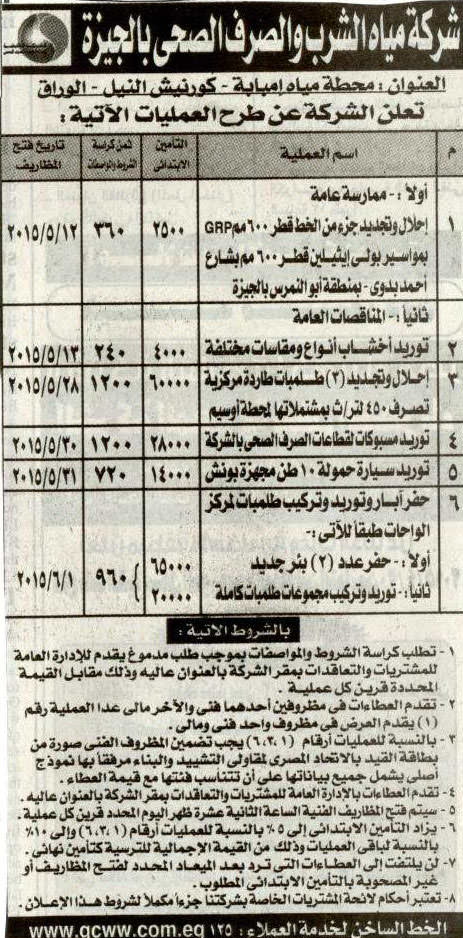 شركة مياه الشرب والصرف الصحى بالجيزة
العنوان : محطة مياه إمبابة - كورنيش النيل - الوراق
تعلن الشركة عن طرح العمليات الآتية :
م اسم العملية التأمين الابتدائى ثمن كراسة الشروط والمواصفات تاريخ فتح المظاريف
أولاً :- ممارسة عامة
١ إحلال وتجديد جزء من الخط قطر ٦٠٠ مم GRP ٢٥٠٠ ٣٦٠ ٢٠١٥/٥/١٢
بمواسير بولى إيثيلين قطر ٦٠٠ مم بشارع
أحمد بدوى - بمنطقة أبو النمرس بالجيزة
ثانياً :- المناقصات العامة
٢ توريد أخشاب أنواع ومقاسات مختلفة ٤٠٠٠ ٢٤٠ ٢٠١٥/٥/١٣
٣ إحلال وتجديد (٣) طلمبات طاردة مركزية ٦٠٠٠٠ ١٢٠٠ ٢٠١٥/٥/٢٨
تصرف ٤٥٠ لتر/ث بمشتملاتها لمحطة أوسيم
٤ توريد مسبوكات لقطاعات الصرف الصحى بالشركة ٢٨٠٠٠ ١٢٠٠ ٢٠١٥/٥/٣٠
٥ توريد سيارة حمولة ١٠ طن مجهزة بونش ١٤٠٠٠ ٧٢٠ ٢٠١٥/٥/٣١
٦ حفر آبار وتوريد وتركيب طلمبات لمركز
الواحات طبقاً للآتى :-
أولاً :- حفر عدد (٢) بئر جديد ٦٥٠٠٠ ٩٦٠ ٢٠١٥/٦/١
ثانياً :- توريد وتركيب مجموعات طلمبات كاملة ٢٠٠٠٠
بالشروط الآتية :
١ - تطلب كراسة الشروط والمواصفات بموجب طلب مدموغ يقدم للإدارة العامة
للمشتريات والتعاقدات بمقر الشركة بالعنوان عاليه وذلك مقابل القيمة
المحددة قرين كل عملية .
٢ - تقدم العطاءات فى مظروفين أحدهما فنى والآخر مالى عدا العملية رقم
(١) يقدم العرض فى مظروف واحد فنى ومالى .
٣ - بالنسبة للعمليات أرقام (٦،٣،١) يجب تضمين المظروف الفنى صورة من
بطاقة القيد بالاتحاد المصرى لمقاولى التشييد والبناء مرفقاً بها نموذج
أصلى يشمل جميع بياناتها على أن تتناسب فئتها مع قيمة العطاء .
٤ - تقدم العطاءات بالإدارة العامة للمشتريات والتعاقدات بمقر الشركة بالعنوان عاليه .
٥ - سيتم فتح المظاريف الفنية الساعة الثانية عشرة ظهر اليوم المحدد قرين كل عملية .
٦ - يزاد التأمين الابتدائى إلى ٥% بالنسبة للعمليات أرقام (٦،٣،١) وإلى ١٠%
بالنسبة لباقى العمليات وذلك من القيمة الإجمالية للترسية كتأمين نهائى .
٧ - لن يلتفت إلى العطاءات التى ترد بعد الميعاد المحدد لفتح المظاريف أو
غير المصحوبة بالتأمين الابتدائى المطلوب .
٨ - تعتبر أحكام لائحة المشتريات الخاصة بشركتنا جزءاً مكملاً لشروط هذا الإعلان .
الخط الساخن لخدمة العملاء : ١٢٥ www.gcww.com.eg